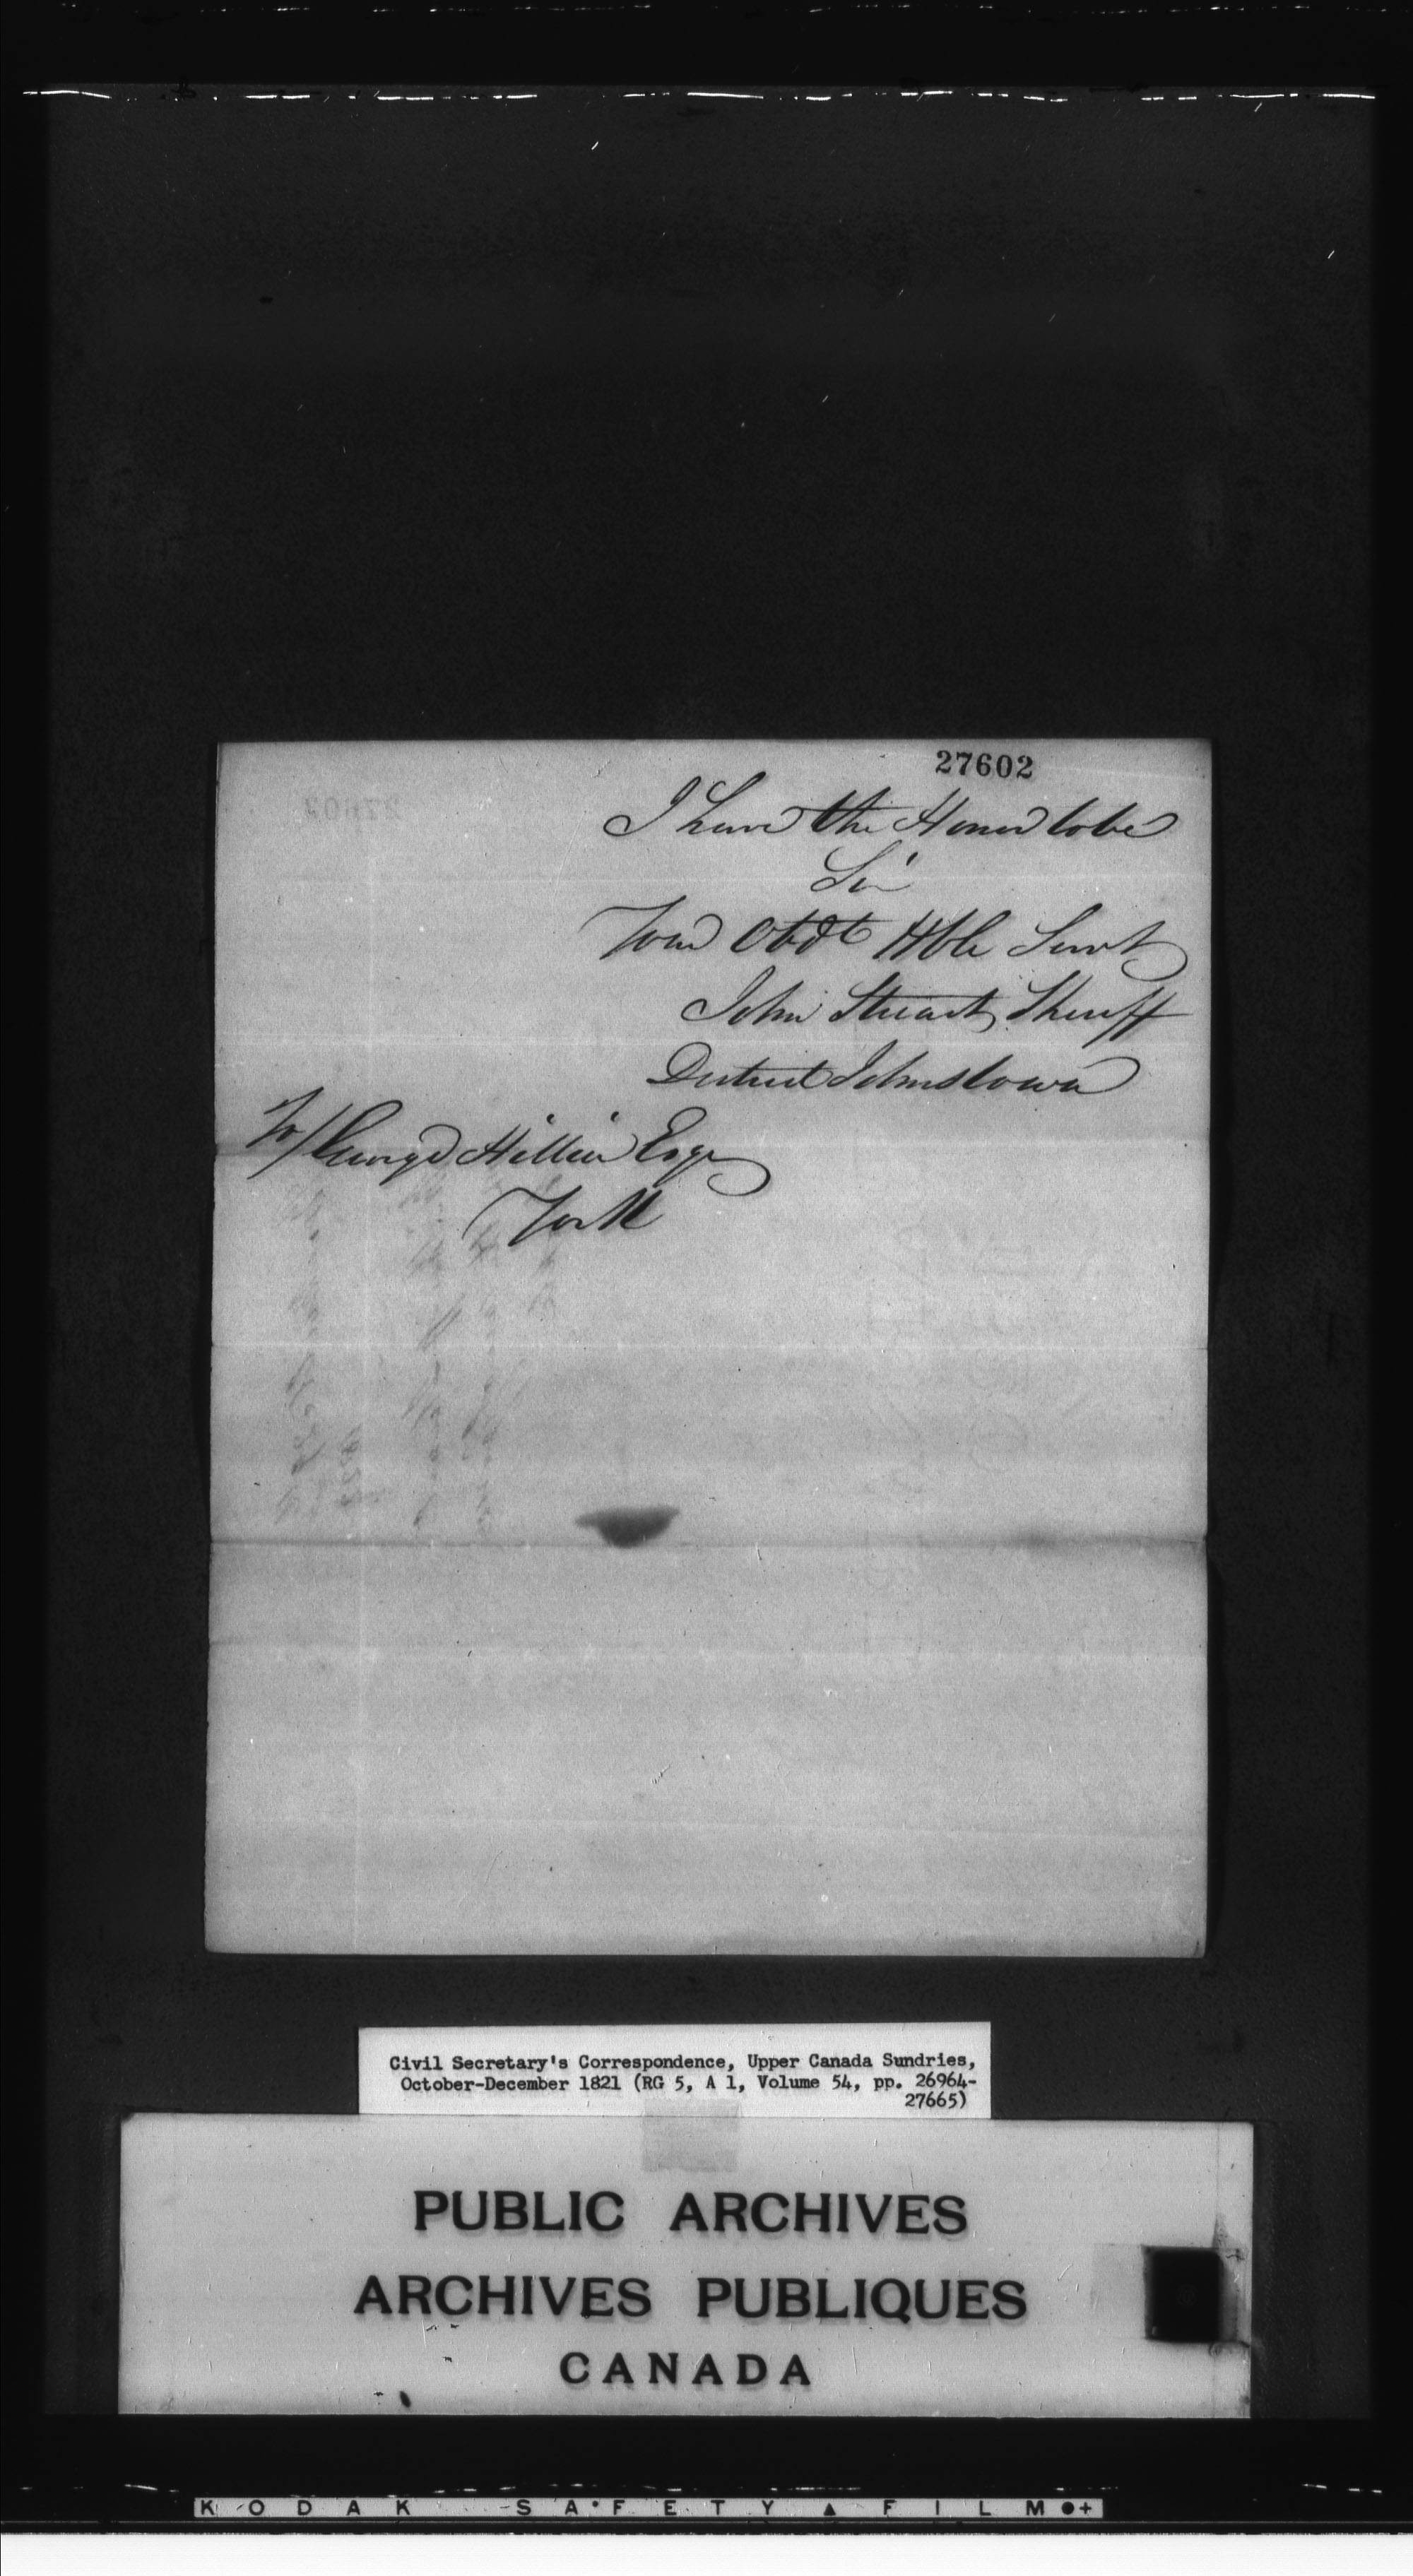 27602
I have the Honor to be
Sir
Your Obdt Hble Servt
John Stuart, Sheriff
District Johnstown
To/ George Hillier Esqr
York
Civil Secretary's Correspondence, Upper Canada Sundries,
October-December 1821 (RG 5, A 1, Volume 54, pp. 26964-
27665)
PUBLIC ARCHIVES
ARCHIVES PUBLIQUES
CANADA
KODAK SAFETY ▲ FILM ●+